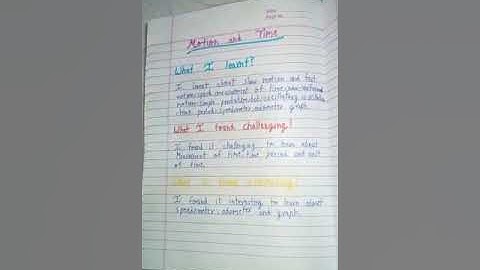 Motion and Time
What I learnt?
I learnt about slow motion and fast
motion, speed, measurement of time, non-uniform
motion, simple pendulum, bob, oscillatory
time period, speedometer, odometer, graph.
What I found challenging!
I found it challenging to learn about
Measurement of time, time period and unit
of time.
What I found interesting?
I found it interesting to learn about
speedometer, odometer and graph.